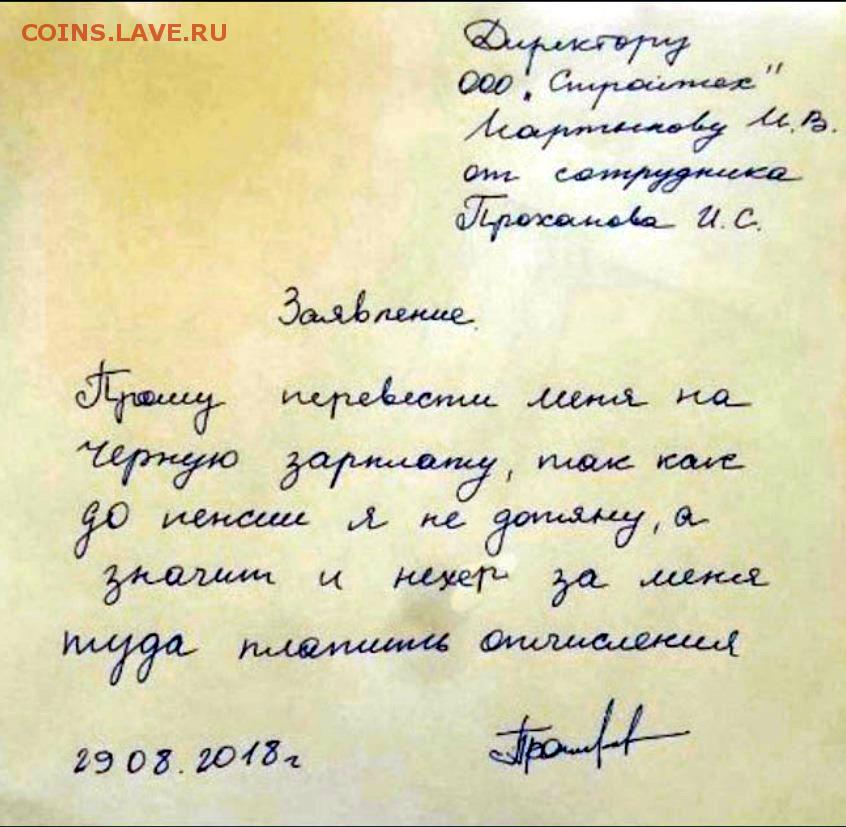 COINS.LAVE.RU
Директору
ООО „Стройтех"
Мартынову И.В.
от сотрудника
Проханова И.С.
Заявление.
Прошу перевести меня на
черную зарплату, так как
до пенсии я не дотяну, а
значит и нехер за меня
туда платить отчисления
29 08. 2018г